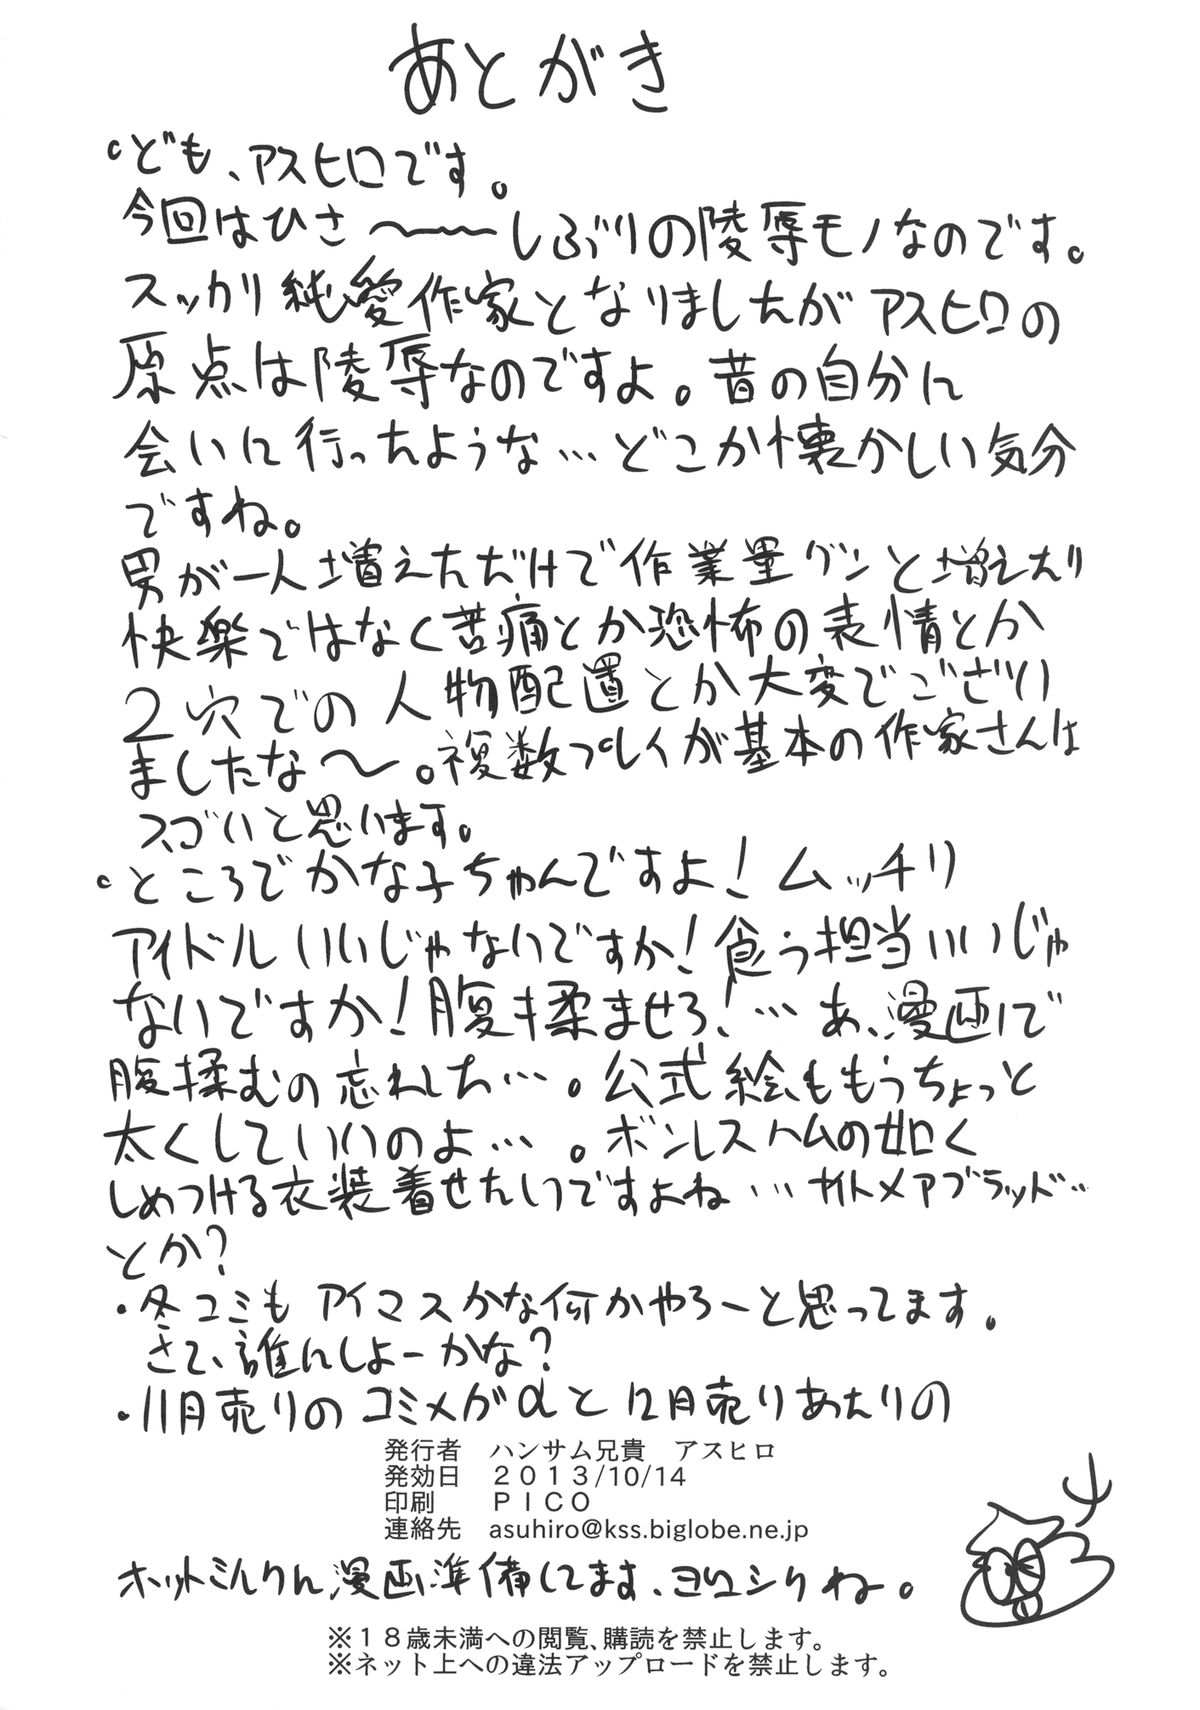 あとがき
。ども、アスヒロです。
今回はひさ〜〜〜しぶりの陵辱モノなのです。
スッカリ純愛作家となりましたがアスヒロの
原点は陵辱なのですよ。昔の自分に
会いに行ったような…どこか懐かしい気分
ですね。
男が一人増えただけで作業量グンと増えたり
快楽ではなく苦痛とか恐怖の表情とか
2穴での人物配置とか大変でござい
ましたな〜。複数プレイが基本の作家さんは
スゴいと思います。
。ところでかな子ちゃんですよ!ムッチリ
アイドルいいじゃないですか!食う担当いいじゃ
ないですか!腹揉ませろ!…あ、漫画で
腹揉むの忘れした…。公式絵ももうちょっと
太くしていいのよ…。ボンレスハムの如く
しめつける衣装着せたいですよね…ナイトメアブラッド…
とか?
・冬コミもアイマスかな何かやろーと思ってます。
さて、誰にしよーかな?
・11月売りのコミメガαと12月売りあたりの
発行者 ハンサム兄貴 アスヒロ
発効日 2013/10/14
印刷 PICO
連絡先 asuhiro@kss.biglobe.ne.jp
ホットミルクに漫画準備してます、ヨロシクね。
※18歳未満への閲覧、購読を禁止します。
※ネット上への違法アップロードを禁止します。